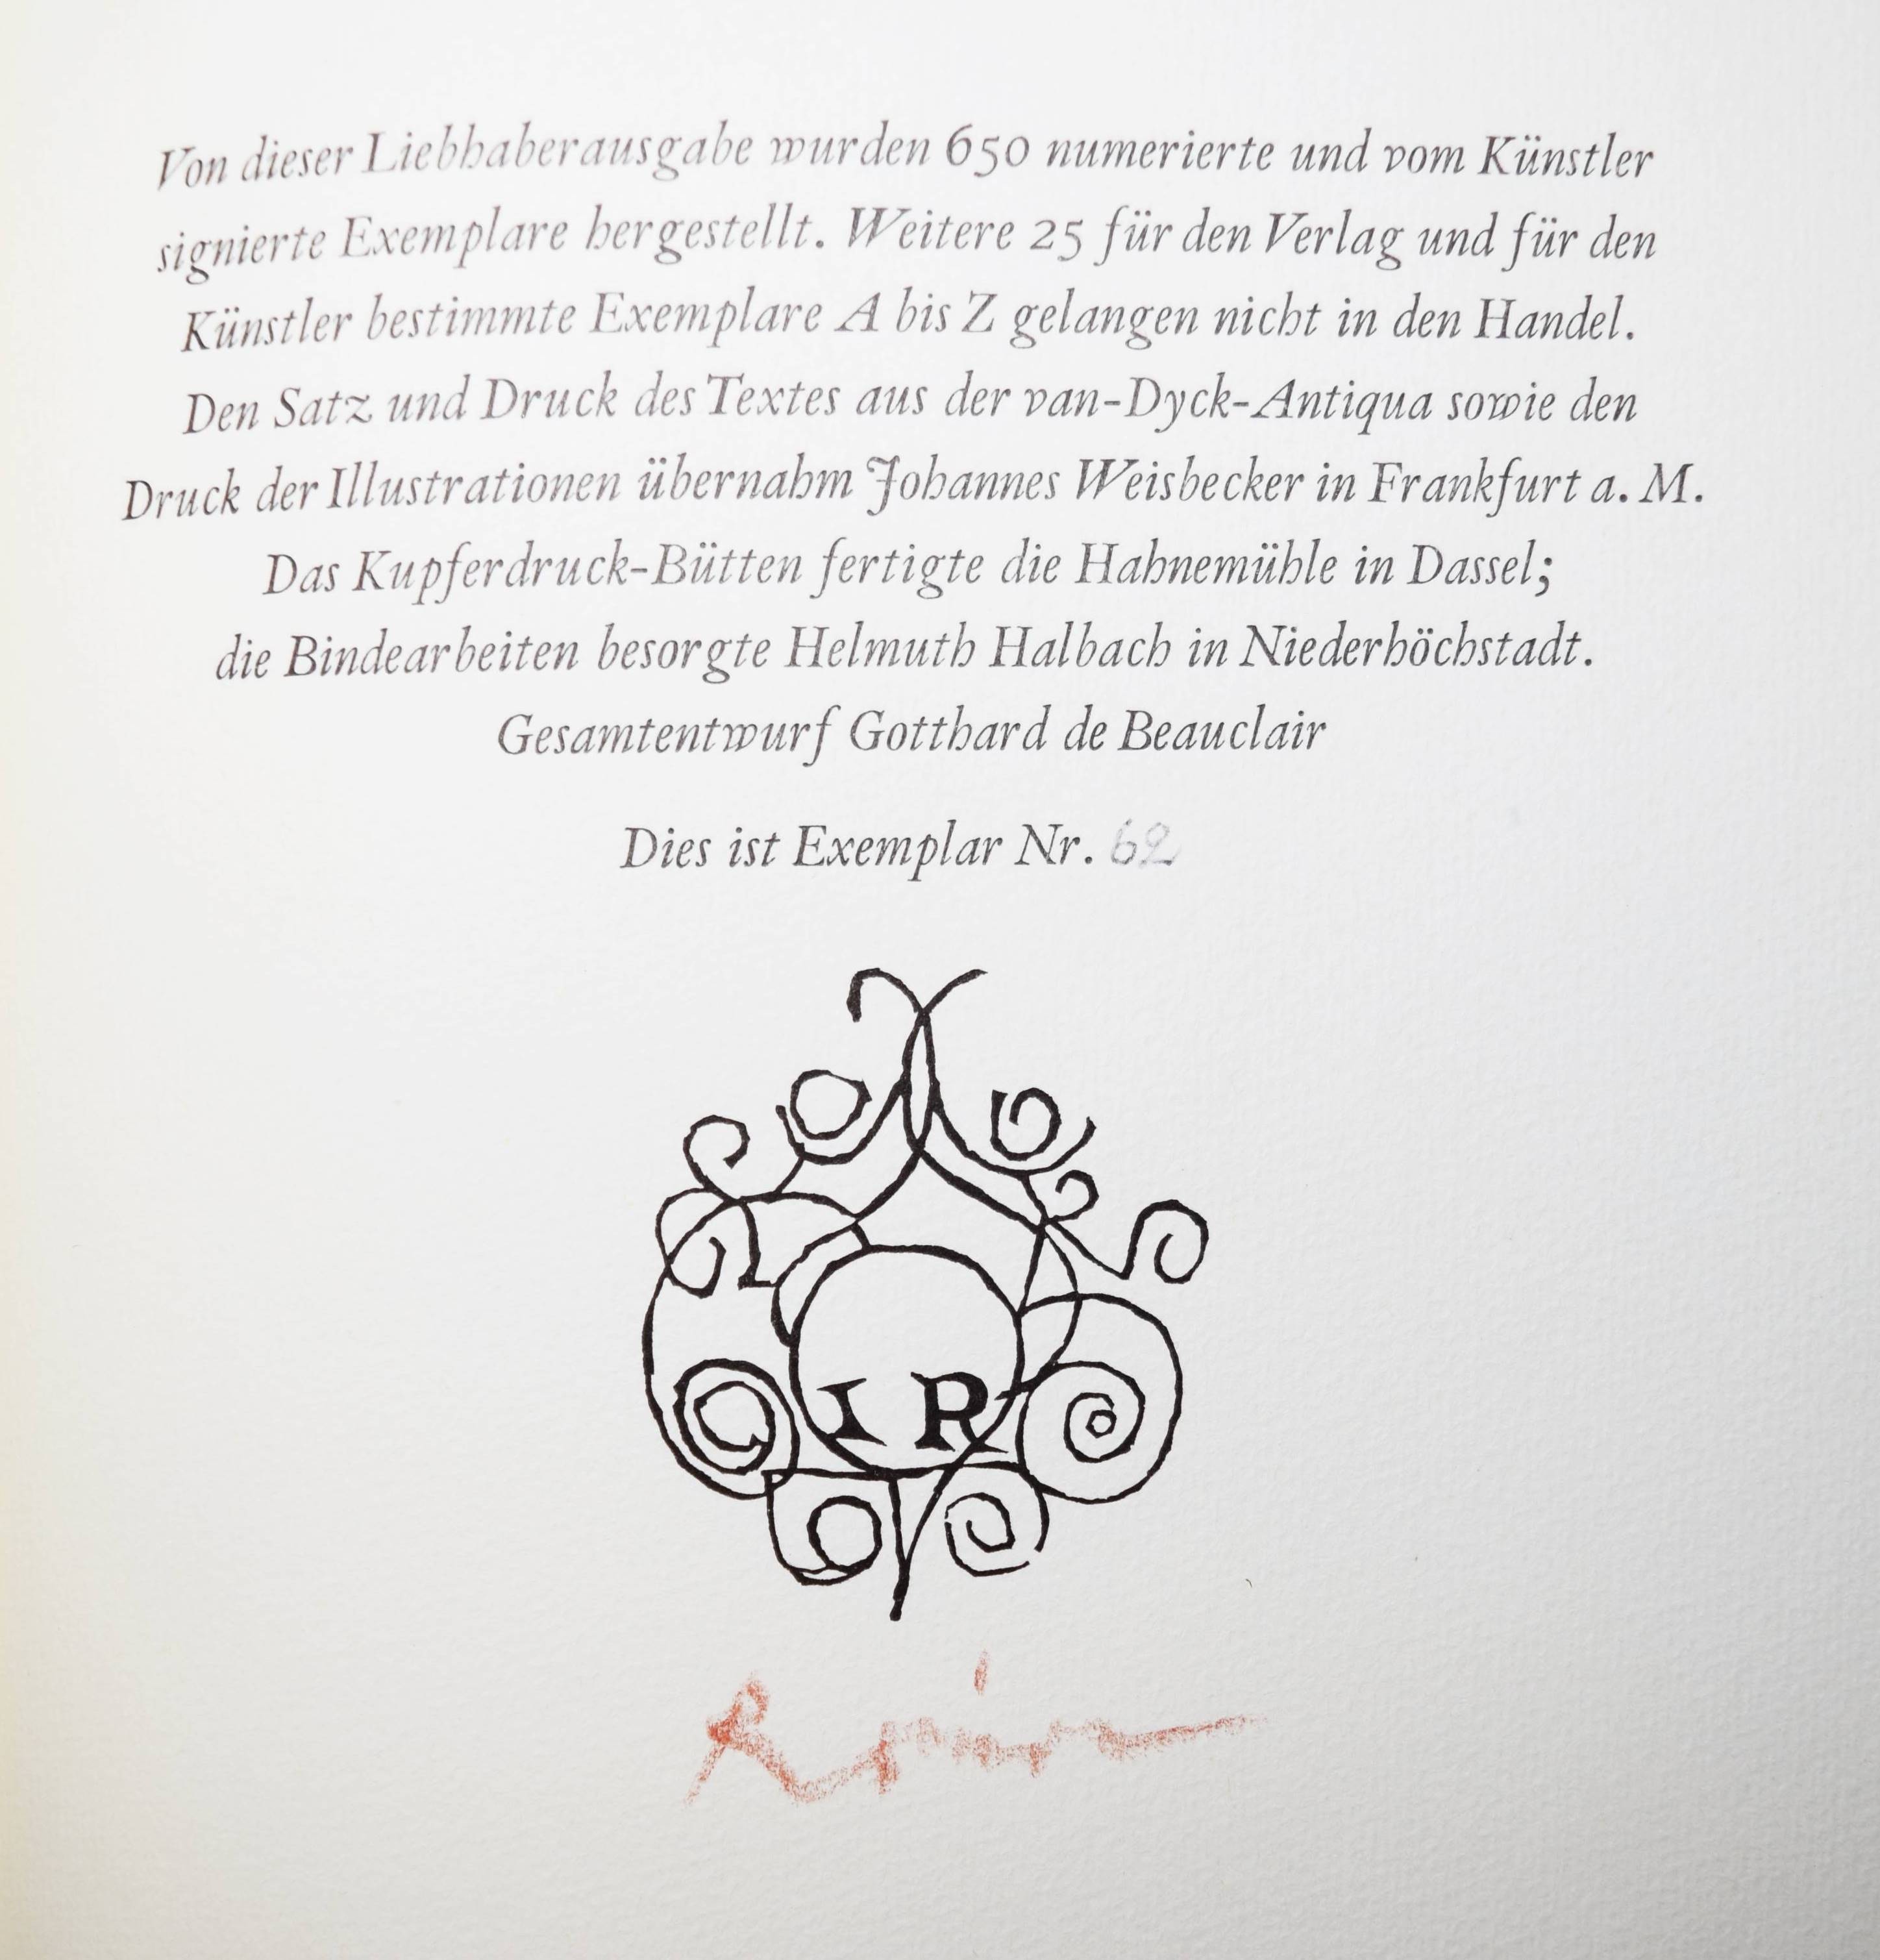 Von dieser Liebhaberausgabe wurden 650 numerierte und vom Künstler
signierte Exemplare hergestellt. Weitere 25 für den Verlag und für den
Künstler bestimmte Exemplare A bis Z gelangen nicht in den Handel.
Den Satz und Druck des Textes aus der van-Dyck-Antiqua sowie den
Druck der Illustrationen übernahm Johannes Weisbecker in Frankfurt a. M.
Das Kupferdruck-Bütten fertigte die Hahnemühle in Dassel;
die Bindearbeiten besorgte Helmuth Halbach in Niederhöchstadt.
Gesamtentwurf Gotthard de Beauclair
Dies ist Exemplar Nr. 62
I R